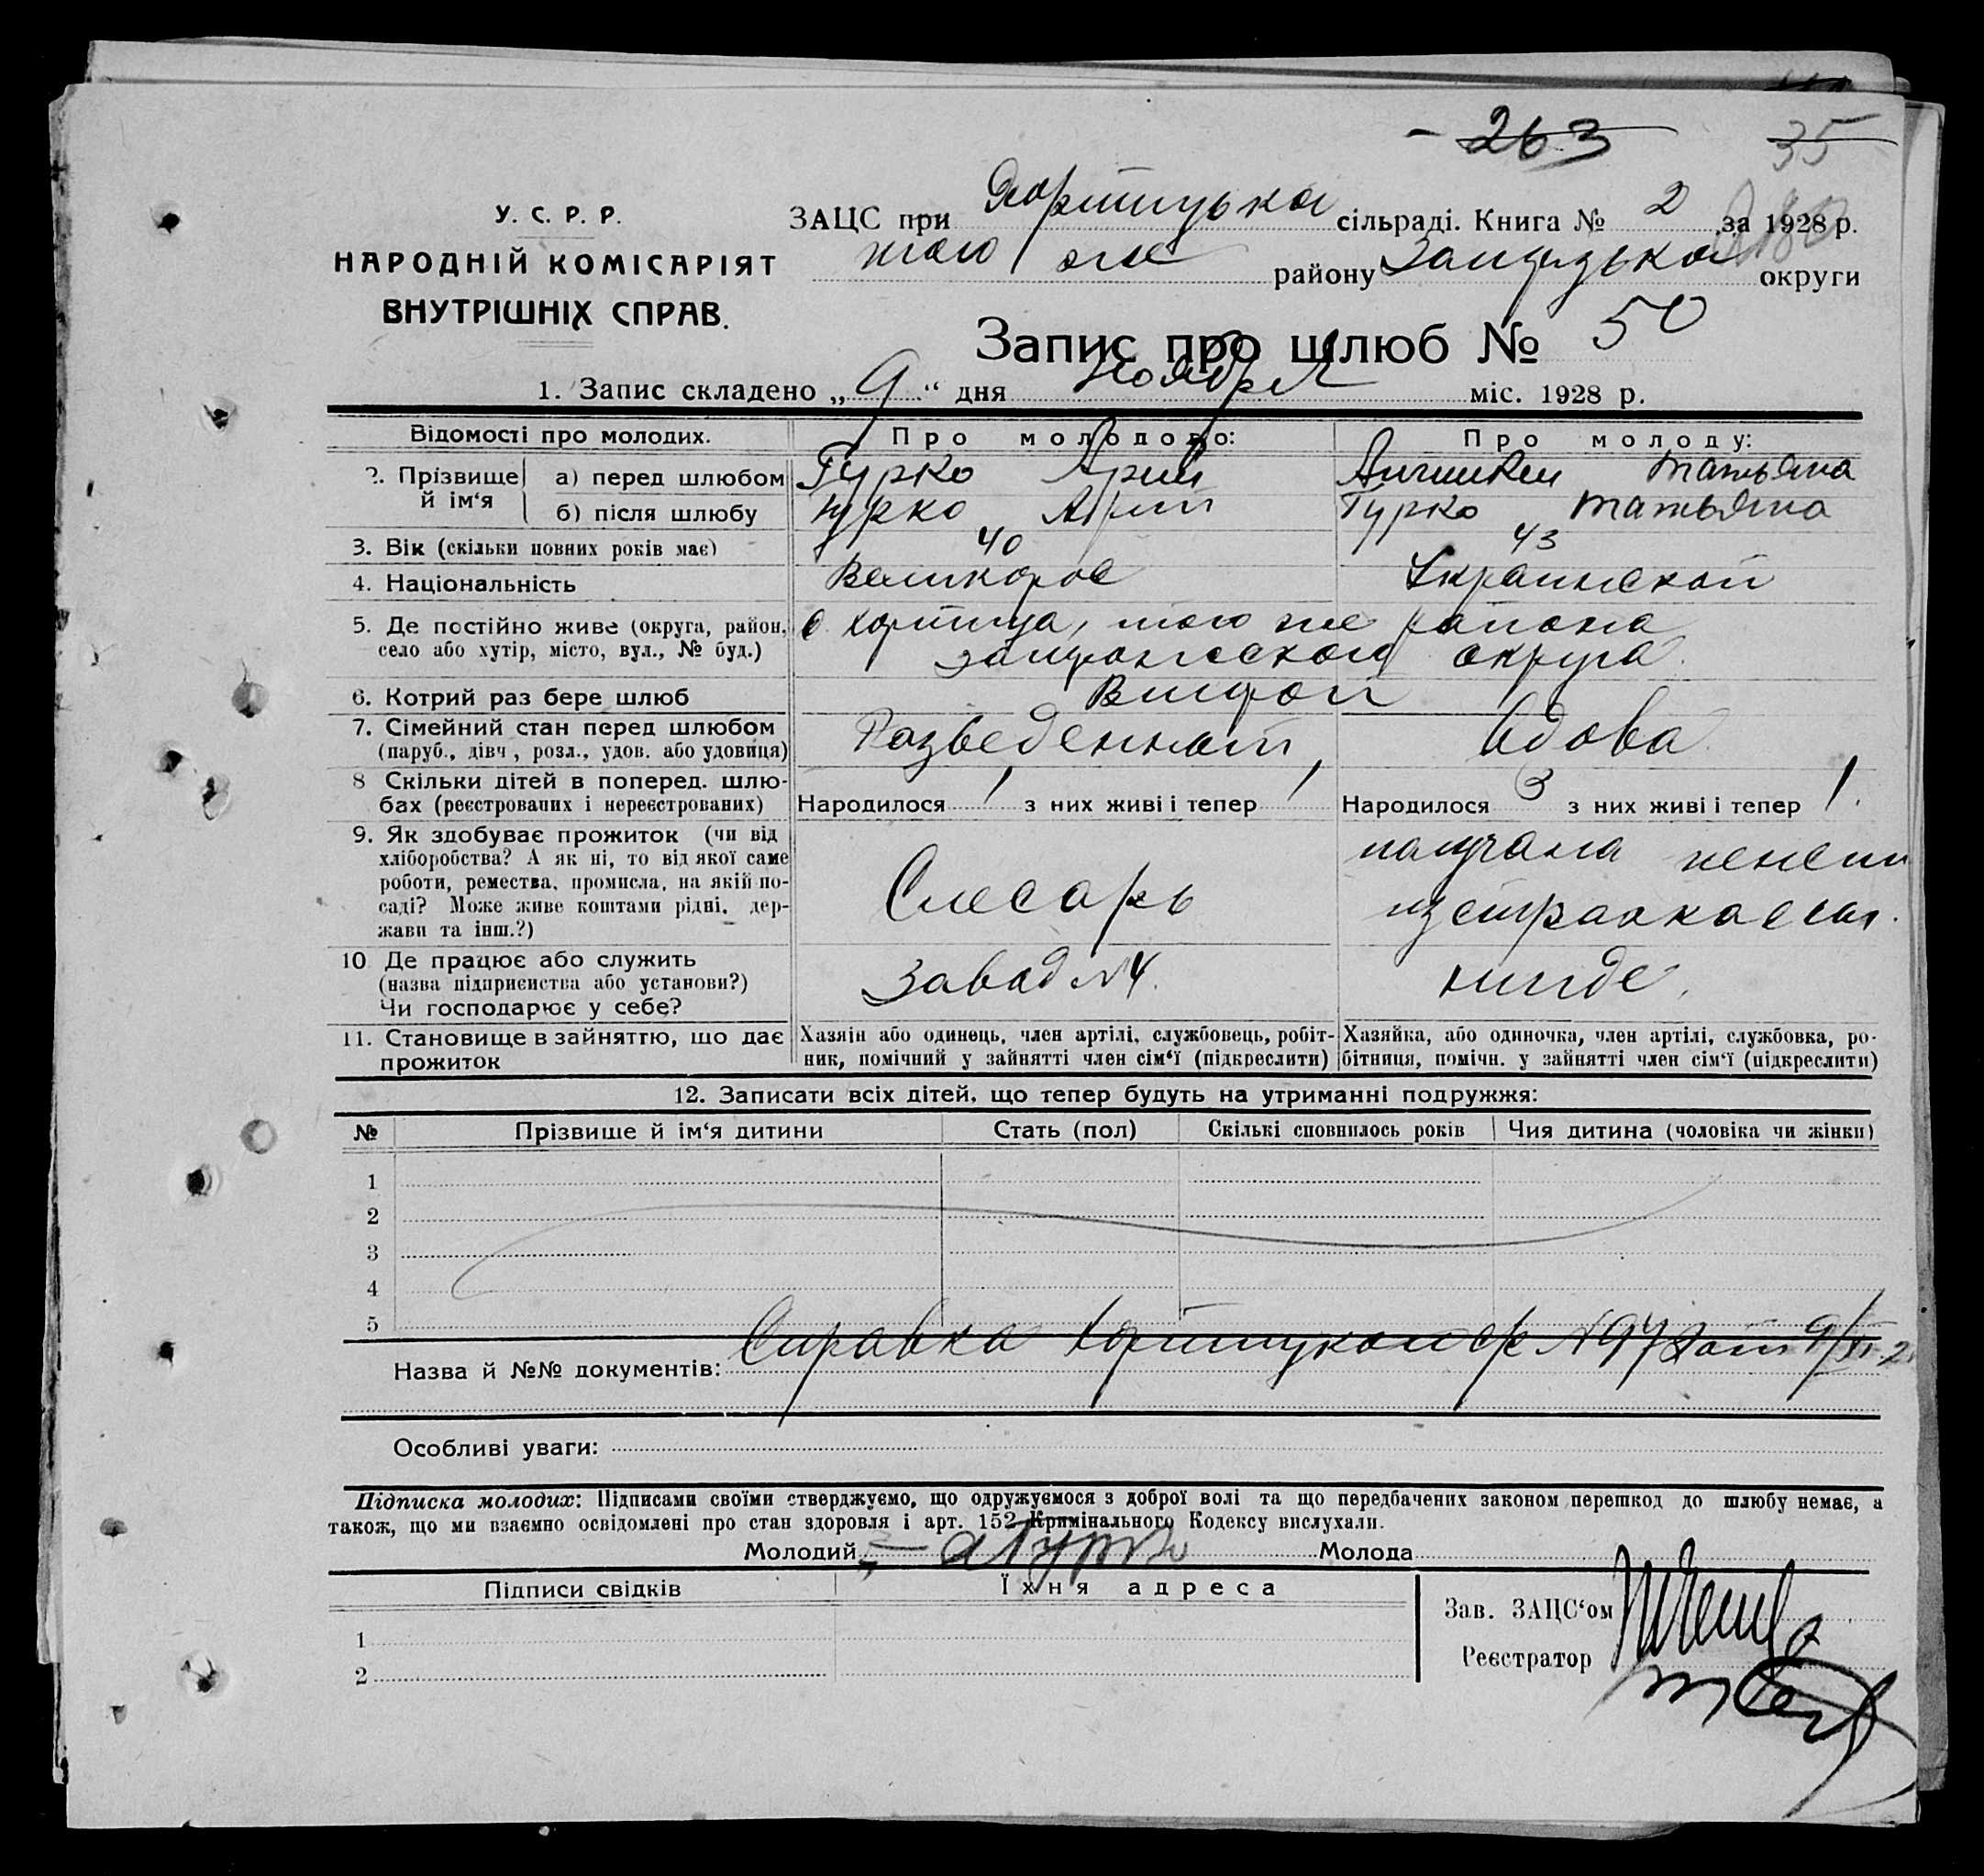 263 35
У. С. Р. Р.
НАРОДНІЙ КОМІСАРІЯТ
ВНУТРІШНІХ СПРАВ.
ЗАЦС при Хортицька сільраді. Книга № 2 за 1928 р.
того же району округи
Запис про шлюб № 50
1. Запис складено „9“ дня Ноября міс. 1928 р.
Відомості про молодих. Про молодого: Про молоду:
2. Прізвище й ім‘я
а) перед шлюбом Гурко Арий Татьяна
б) після шлюбу Гурко Арий Гурко Татьяна
3. Вік (скільки повних років має) 40 43
4. Національність Великорос Украинской
5. Де постійно живе (округа, район, село або хутір, місто, вул., № буд.) с. Хортица, того же района
запорожского округа.
6. Котрий раз бере шлюб Второй
7. Сімейний стан перед шлюбом Разведенный Вдова
(паруб., дівч., розл., удов. або удовиця)
8 Скільки дітей в поперед. шлю-
бах (реєстрованих і нереєстрованих) Народилося 1 з них живі і тепер 1 Народилося 3 з них живі і тепер 1.
9. Як здобуває прожиток (чи від
хліборобства? А як ні, то від якої саме
роботи, ремества, промисла, на якій по-
саді? Може живе коштами рідні, дер-
жави та інш.?)
Слесарь
из страхкассы.
10 Де працює або служить
(назва підприємства або установи?)
Чи господарює у себе?
Завод №4. нигде.
11. Становище в зайняттю, що дає
прожиток
Хазяін або одинець, член артілі, службовець, робіт-
ник, помічний у зайнятті член сім‘ї (підкреслити)
Хазяйка, або одиночка, член артілі, службовка, ро-
бітниця, помічн. у зайнятті член сім‘ї (підкреслити)
12. Записати всіх дітей, що тепер будуть на утриманні подружжя:
№ Прізвище й ім‘я дитини Стать (пол) Скількі сповнилось років Чия дитина (чоловіка чи жінки)
1
2
3
4
5
Назва й №№ документів: Справка
Особливі уваги:
Підписка молодих: Підписами своїми стверджуємо, що одружуємося з доброї волі та що передбачених законом перешкод до шлюбу немає, а
також, що ми взаємно освідомлені про стан здоровля і арт. 152 Кримінального Кодексу вислухали.
Молодий АГурко Молода
Підписи свідків Їхня адреса
Зав. ЗАЦС‘ом
Реєстратор
1
2